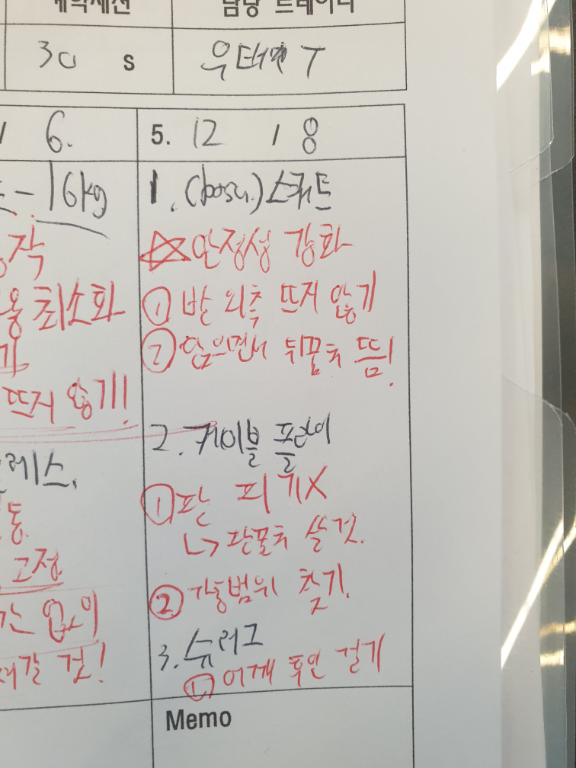 계약세션 담당 트레이너
30 s 우 T
6. 5. 12 / 8
-16kg
1. (bosu.)스쿼트
동작
☆안정성 강화
최소화
① 발 외측 뜨지 않기
기
② 앉으면서 뒤꿈치 뜸!
뜨지 않기!!
2. 케이블 플라이
레스.
① 팔 피기X
↳ 팔꿈치 쓸 것.
고정
② 가동범위 찾기.
없이
3. 슈러그
갈 것!
① 어깨 후인 걸기
Memo